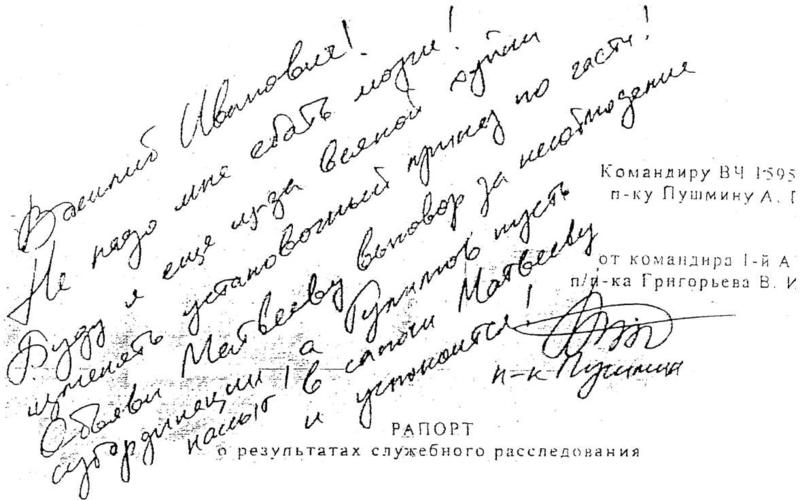 Василий Иванович!
Не надо мне ебать мозги!
Буду я еще из-за всякой хуйни
изменять установочный приказ по части!
Объяви Матвееву выговор за несоблюдение
субординации, а пусть
нассыт в сапоги Матвееву
и успокоится!
п-к Пушмин
Командиру ВЧ 1595
п-ку Пушмину А. Г
от командира 1-й А
п/п-ка Григорьева В. И
РАПОРТ
о результатах служебного расследования